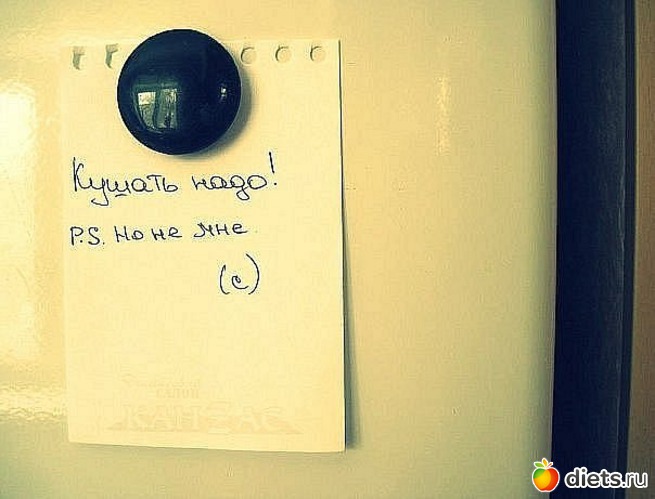 Кушать надо!
P.S. Но не мне.
(с)
САЛОН
КАНЗАС
diets.ru